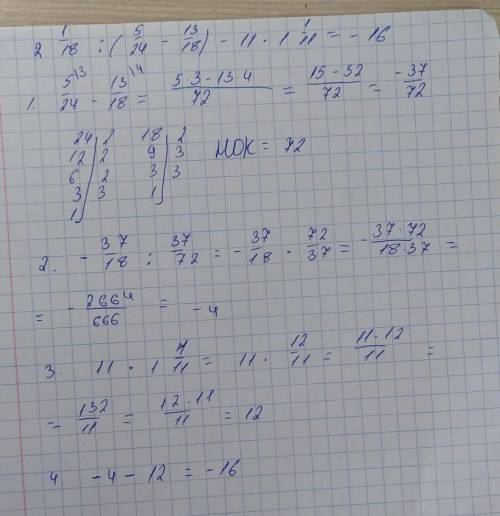 2 1/18 : (5/24 - 13/18) - 11 · 1 1/11 = - 16
1. 5/24 \3 - 13/18 \4 = (5·3-13·4)/72 = (15-52)/72 = -37/72
24 | 2 18 | 2
12 | 2 9 | 3 НОК = 72
6 | 2 3 | 3
3 | 3 1
1
2. - 37/18 : 37/72 = - 37/18 · 72/37 = - (37·72)/(18·37) =
= - 2664/666 = -4
3. 11 · 1 1/11 = 11 · 12/11 = (11·12)/11 =
= 132/11 = (12·11)/11 = 12
4. -4 - 12 = -16